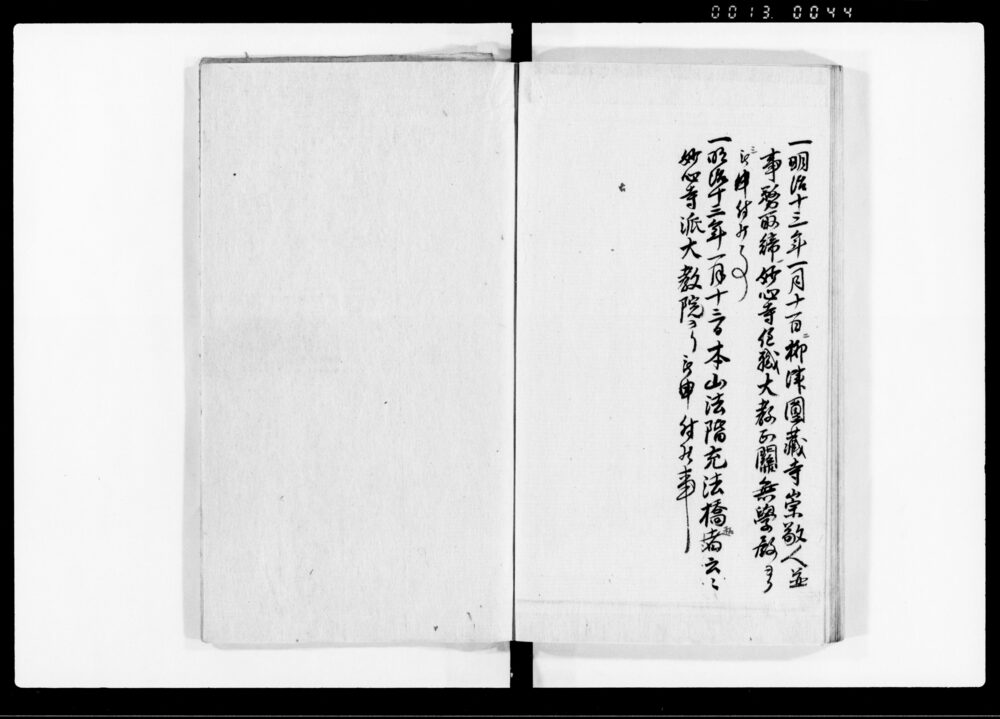 0013 0044
一明治十三年一月十一日柳津圓藏寺崇敬人並
事務取締妙心寺住職大教正關無學殿ヨリ
被申付候事
一明治十三年一月十三日本山法階充法橋者云々
妙心寺派大教院ヨリ被申付候事